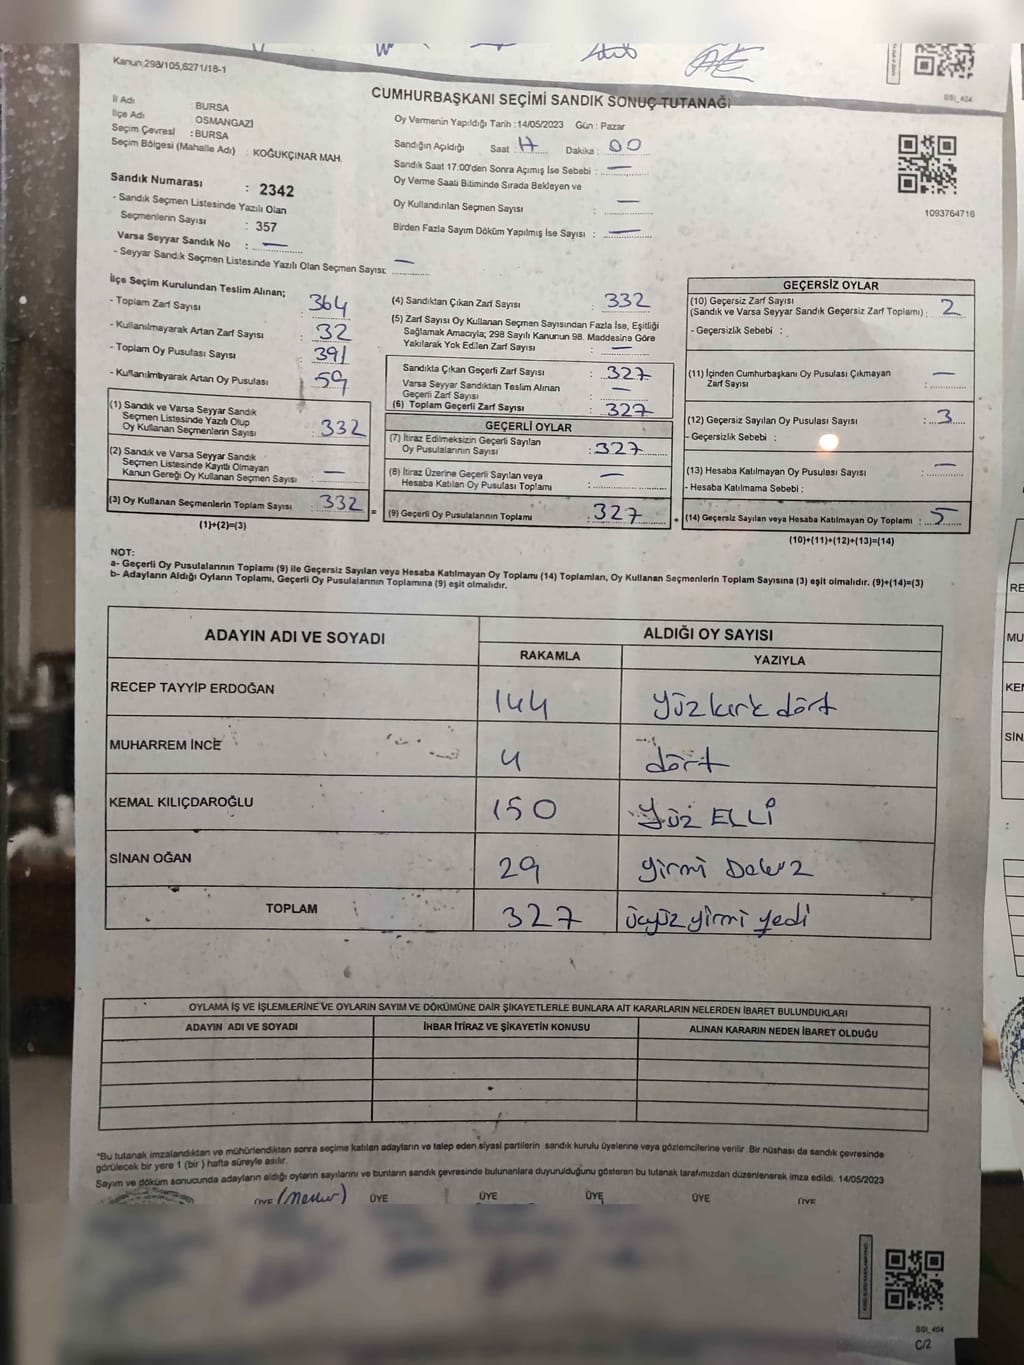 Kanun:298/105,6271/18-1
CUMHURBAŞKANI SEÇİMİ SANDIK SONUÇ TUTANAĞI
İl Adı : BURSA
İlçe Adı OSMANGAZİ
Seçim Çevresi : BURSA
Seçim Bölgesi (Mahalle Adı) : KOĞUKÇINAR MAH.
Sandık Numarası : 2342
- Sandık Seçmen Listesinde Yazılı Olan
Seçmenlerin Sayısı : 357
Varsa Seyyar Sandık No : —
- Seyyar Sandık Seçmen Listesinde Yazılı Olan Seçmen Sayısı: —
Oy Vermenin Yapıldığı Tarih : 14/05/2023 Gün : Pazar
Sandığın Açıldığı Saat : 17 Dakika : 00
Sandık Saat 17:00'den Sonra Açımış İse Sebebi : —
Oy Verme Saati Bitiminde Sırada Bekleyen ve
Oy Kullandırılan Seçmen Sayısı : —
Birden Fazla Sayım Döküm Yapılmış İse Sayısı : —
BSI_404
1093764716
İlçe Seçim Kurulundan Teslim Alınan;
- Toplam Zarf Sayısı : 364
- Kullanılmayarak Artan Zarf Sayısı : 32
- Toplam Oy Pusulası Sayısı : 391
- Kullanılmıyarak Artan Oy Pusulası : 59
(1) Sandık ve Varsa Seyyar Sandık
Seçmen Listesinde Yazılı Olup
Oy Kullanan Seçmenlerin Sayısı : 332
(2) Sandık ve Varsa Seyyar Sandık
Seçmen Listesinde Kayıtlı Olmayan
Kanun Gereği Oy Kullanan Seçmen Sayısı : —
(3) Oy Kullanan Seçmenlerin Toplam Sayısı : 332 =
(1)+(2)=(3)
(4) Sandıktan Çıkan Zarf Sayısı : 332
(5) Zarf Sayısı Oy Kullanan Seçmen Sayısından Fazla İse, Eşitliği
Sağlamak Amacıyla; 298 Sayılı Kanunun 98. Maddesine Göre
Yakılarak Yok Edilen Zarf Sayısı : —
Sandıkta Çıkan Geçerli Zarf Sayısı : 327
Varsa Seyyar Sandıktan Teslim Alınan
Geçerli Zarf Sayısı : —
(6) Toplam Geçerli Zarf Sayısı : 327
GEÇERLİ OYLAR
(7) İtiraz Edilmeksizin Geçerli Sayılan
Oy Pusulalarının Sayısı : 327
(8) İtiraz Üzerine Geçerli Sayılan veya
Hesaba Katılan Oy Pusulası Toplamı : —
(9) Geçerli Oy Pusulalarının Toplamı : 327 +
GEÇERSİZ OYLAR
(10) Geçersiz Zarf Sayısı
(Sandık ve Varsa Seyyar Sandık Geçersiz Zarf Toplamı) : 2
- Geçersizlik Sebebi :
(11) İçinden Cumhurbaşkanı Oy Pusulası Çıkmayan
Zarf Sayısı : —
(12) Geçersiz Sayılan Oy Pusulası Sayısı : 3
- Geçersizlik Sebebi :
(13) Hesaba Katılmayan Oy Pusulası Sayısı : —
- Hesaba Katılmama Sebebi :
(14) Geçersiz Sayılan veya Hesaba Katılmayan Oy Toplamı : 5
(10)+(11)+(12)+(13)=(14)
NOT:
a- Geçerli Oy Pusulalarının Toplamı (9) ile Geçersiz Sayılan veya Hesaba Katılmayan Oy Toplamı (14) Toplamları, Oy Kullanan Seçmenlerin Toplam Sayısına (3) eşit olmalıdır. (9)+(14)=(3)
b- Adayların Aldığı Oyların Toplamı, Geçerli Oy Pusulalarının Toplamına (9) eşit olmalıdır.
ADAYIN ADI VE SOYADI ALDIĞI OY SAYISI
RAKAMLA YAZIYLA
RECEP TAYYİP ERDOĞAN 144 Yüzkırk dört
MUHARREM İNCE 4 dört
KEMAL KILIÇDAROĞLU 150 Yüz ELLİ
SİNAN OĞAN 29 yirmi Dokuz
TOPLAM 327 üçyüz yirmi yedi
OYLAMA İŞ VE İŞLEMLERİNE VE OYLARIN SAYIM VE DÖKÜMÜNE DAİR ŞİKAYETLERLE BUNLARA AİT KARARLARIN NELERDEN İBARET BULUNDUKLARI
ADAYIN ADI VE SOYADI İHBAR İTİRAZ VE ŞİKAYETİN KONUSU ALINAN KARARIN NEDEN İBARET OLDUĞU
*Bu tutanak imzalandıktan ve mühürlendikten sonra seçime katılan adayların ve talep eden siyasi partilerin sandık kurulu üyelerine veya gözlemcilerine verilir. Bir nüshası da sandık çevresinde
görülecek bir yere 1 (bir) hafta süreyle asılır.
Sayım ve döküm sonucunda adayların aldığı oyların sayılarını ve bunların sandık çevresinde bulunanlara duyurulduğunu gösteren bu tutanak tarafımızdan düzenlenerek imza edildi. 14/05/2023
ÜYE (memur) ÜYE ÜYE ÜYE ÜYE ÜYE
BSI_404
C/2
RE
MU
KE
SİN